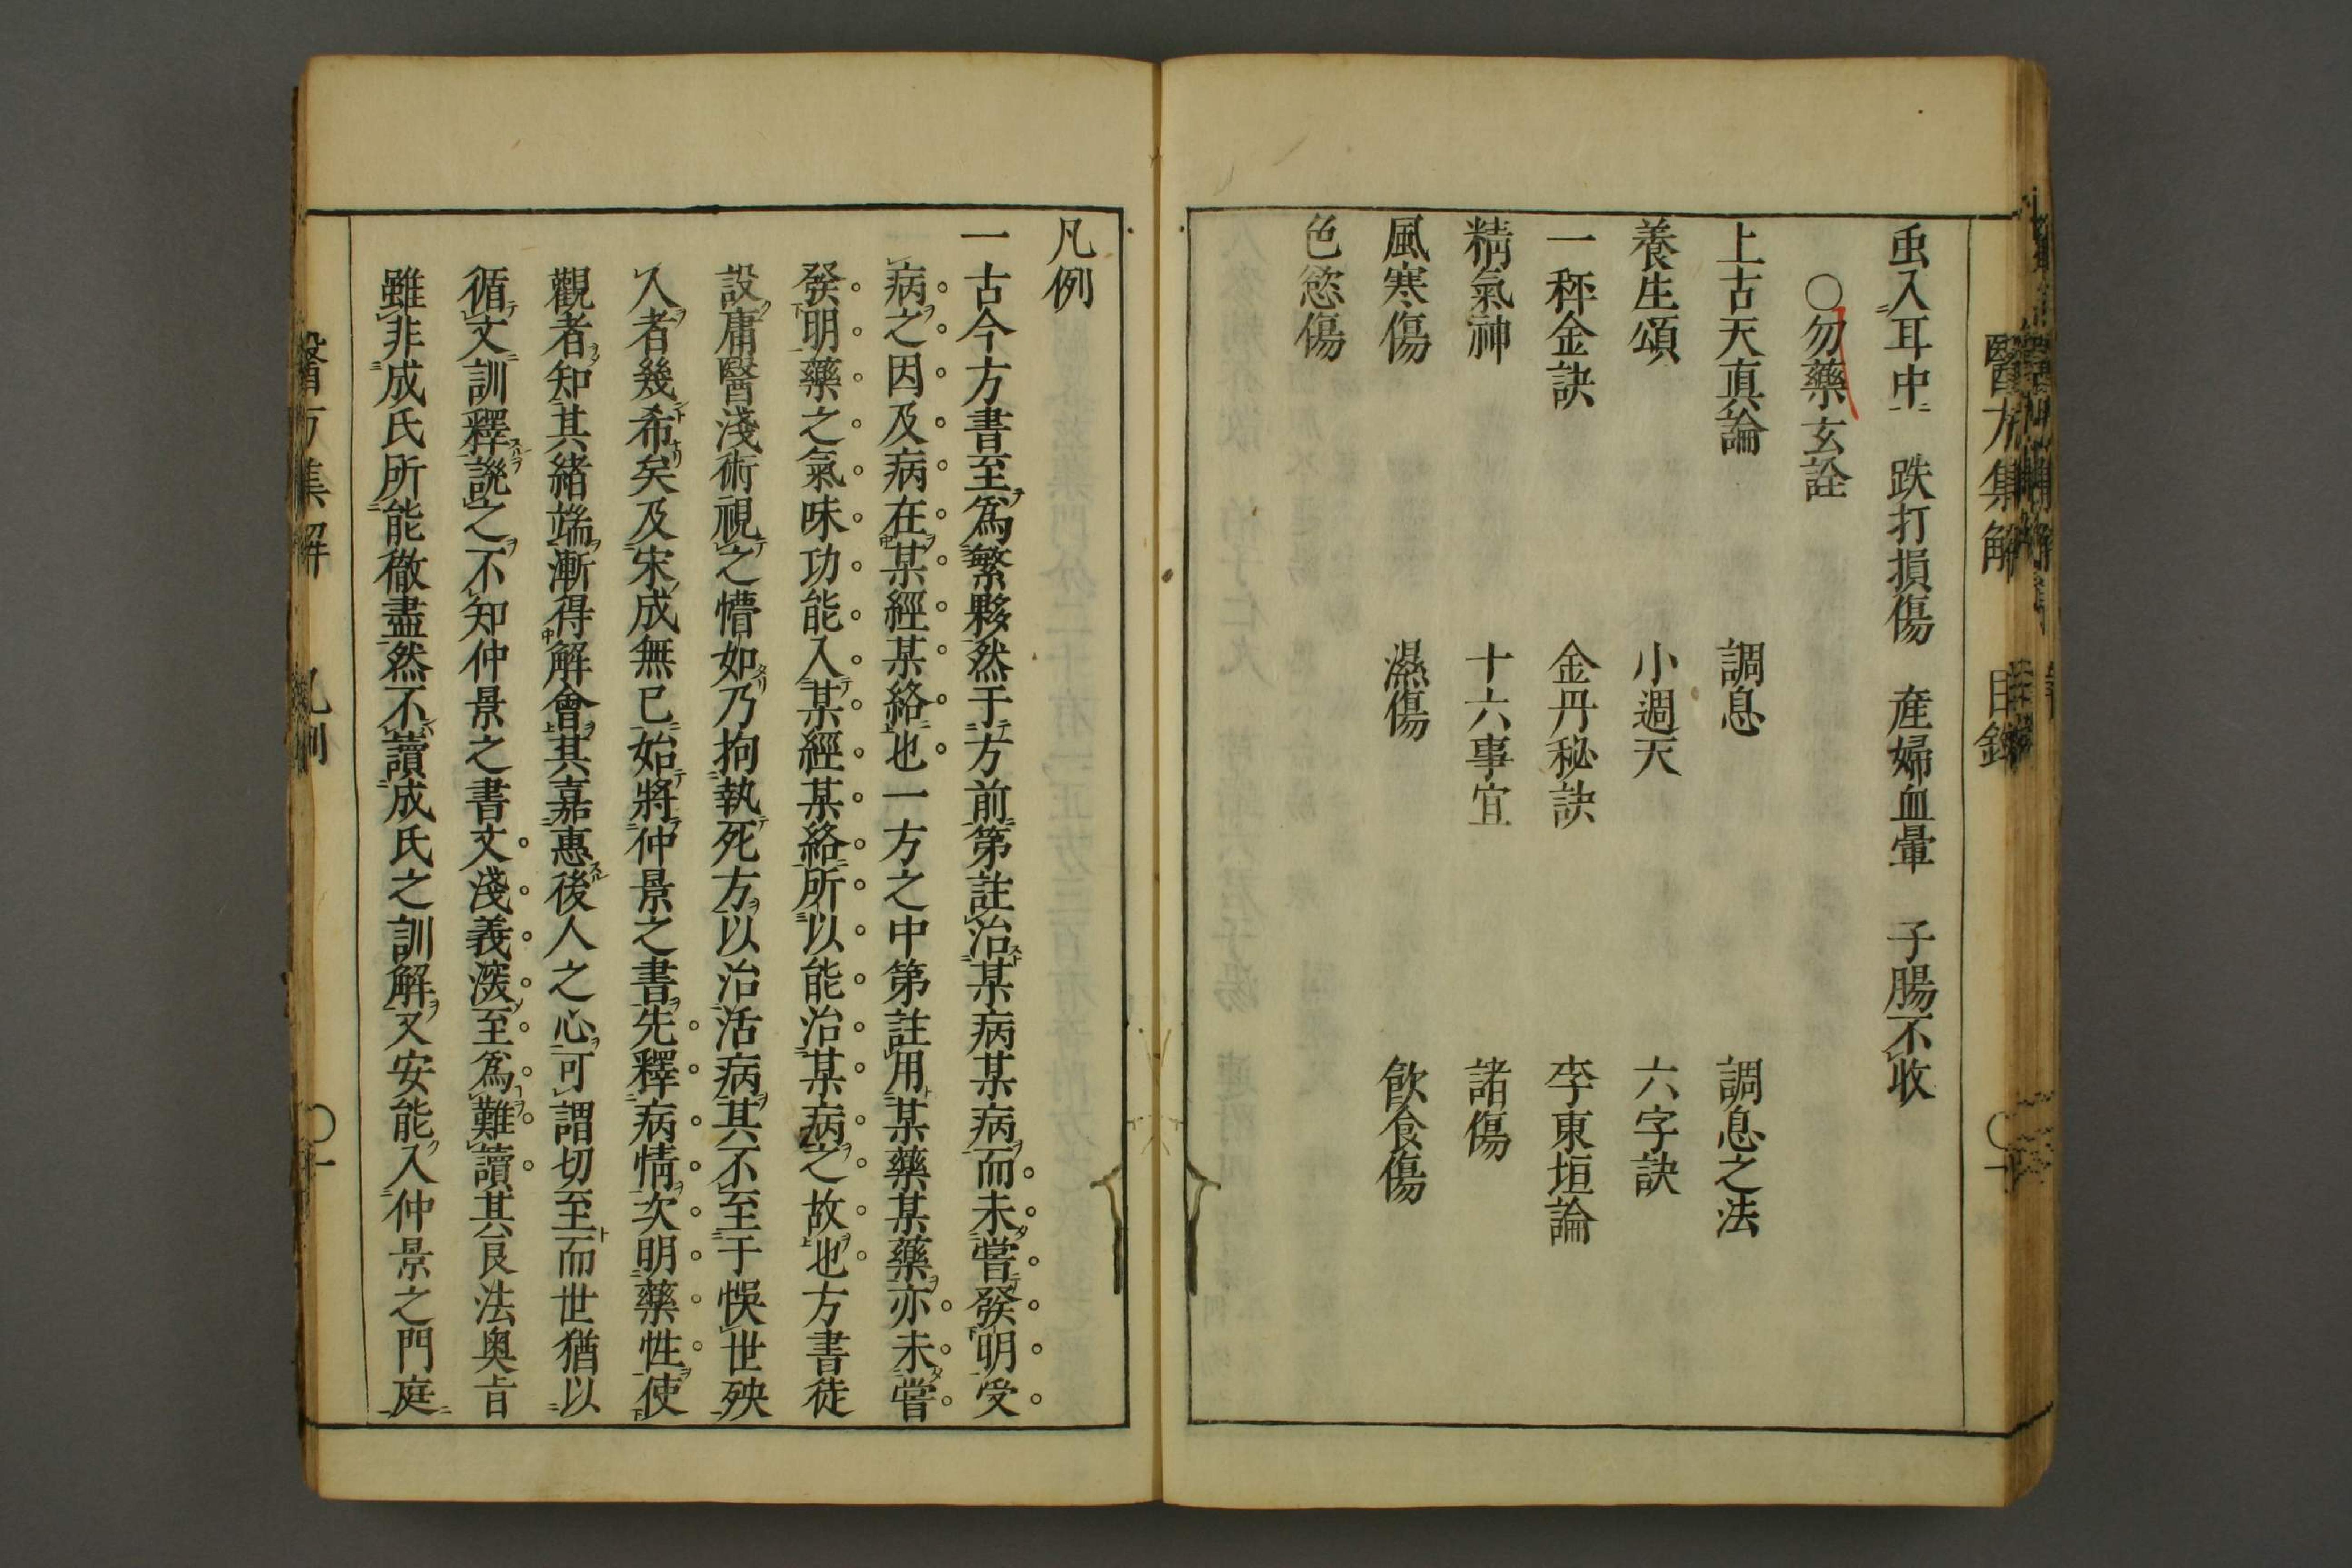 醫方集解 目錄
虫入耳中 跌打損傷 產婦血暈 子腸不收
○勿藥玄詮
上古天真論 調息 調息之法
養生頌 小週天 六字訣
一秤金訣 金丹秘訣 李東垣論
精氣神 十六事宜 諸傷
風寒傷 濕傷 飲食傷
色慾傷
凡例
一古今方書至爲繁夥然于方前第註治某病某病而未嘗發明受
病之因及病在某經某絡也一方之中第註用某藥某藥亦未嘗
發明藥之氣味功能入某經某絡所以能治某病之故也方書徒
設庸醫淺術視之懵如乃拘執死方以治活病其不至于悞世殃
人者幾希矣及宋成無已始將仲景之書先釋病情次明藥性使
觀者知其緒端漸得解會其嘉惠後人之心可謂切至而世猶以
循文訓釋譏之不知仲景之書文淺義深至爲難讀其良法奧旨
雖非成氏所能徹盡然不讀成氏之訓解又安能入仲景之門庭
醫方集解 凡例 ○一